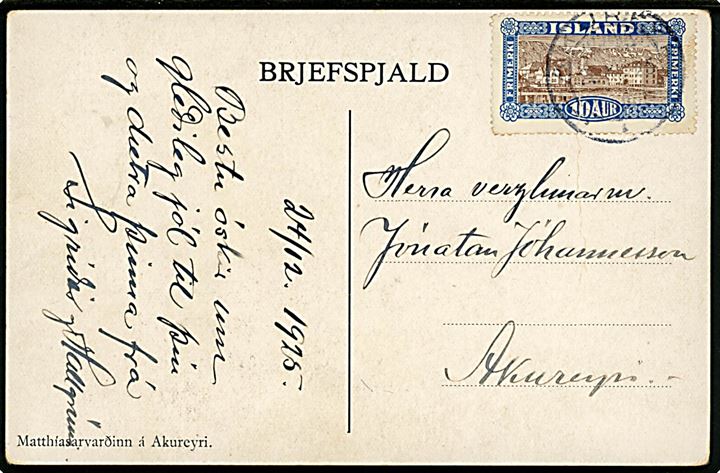 BRJEFSPJALD
ÍSLAND
FRIMERKI
FRIMERKI
10 AUR
24/12. 1925.
Bestu óskir um
gleðileg jól til þín
og dætra þinna frá
Sigríði og Hallgrími
Herra verzlunarm.
Jónatan Jóhannesson
Akureyri.
Matthíasarvarðinn á Akureyri.